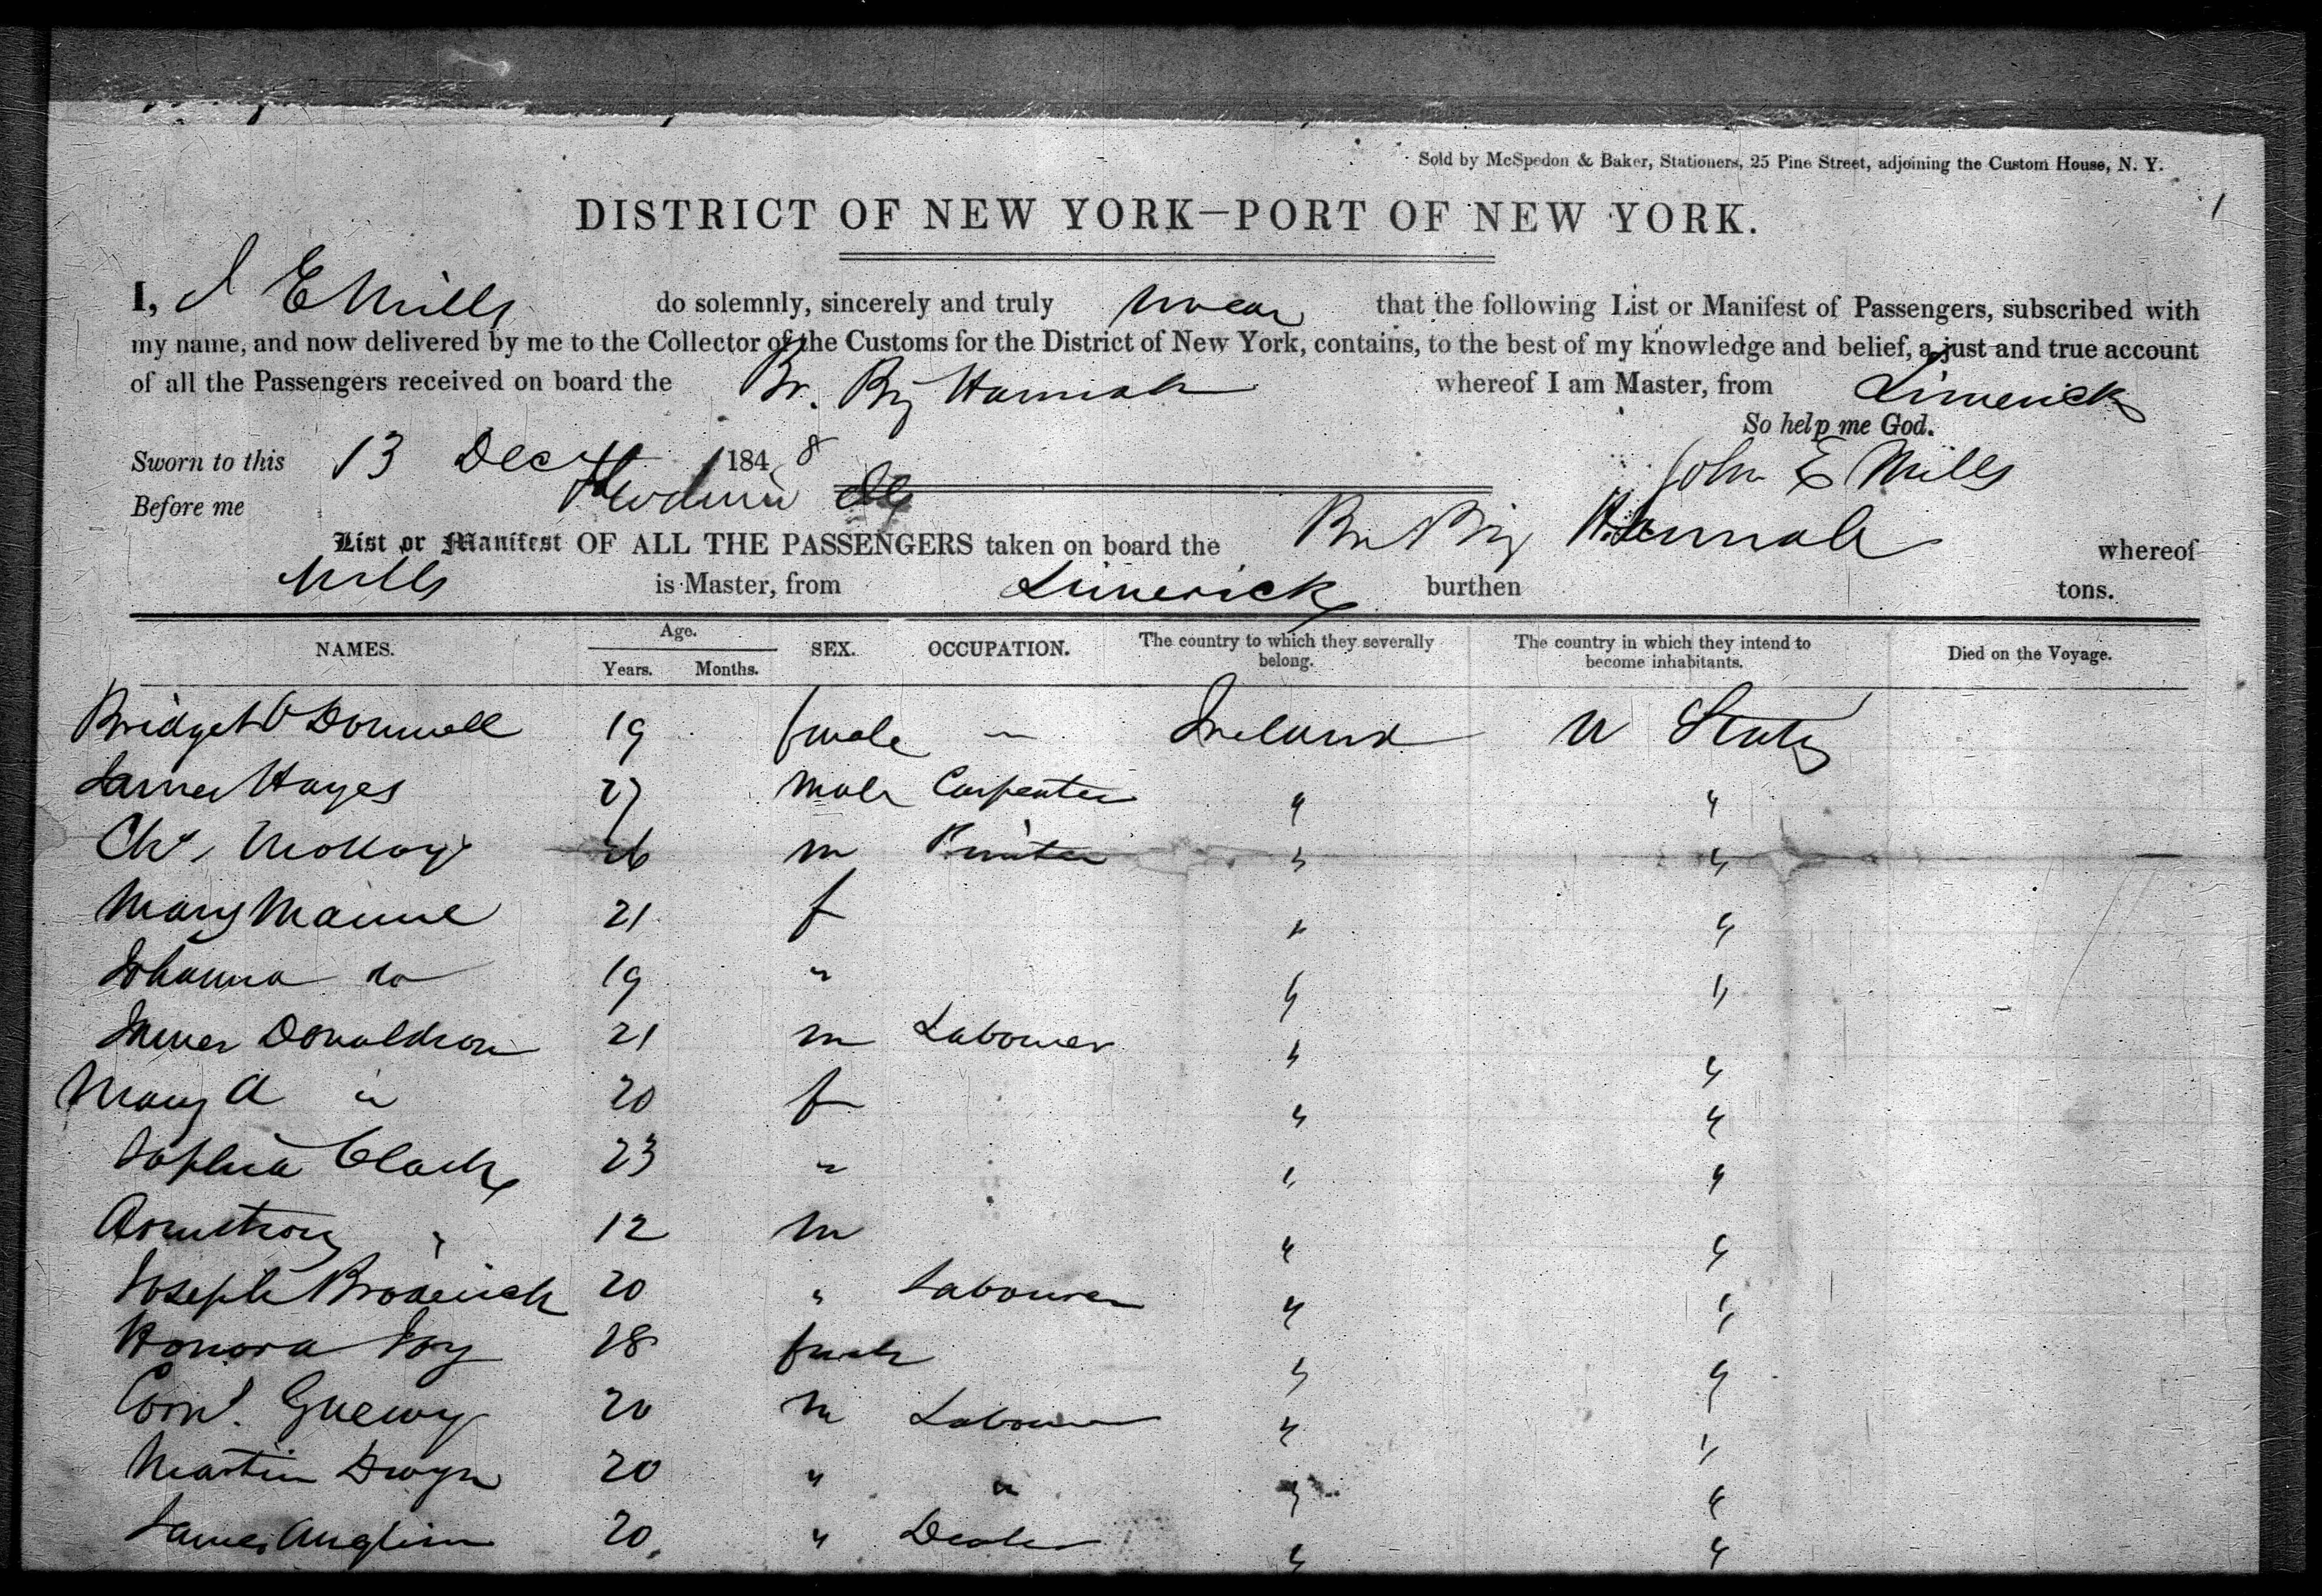 Sold by McSpedon & Baker, Stationers, 25 Pine Street, adjoining the Custom House, N. Y.
1
DISTRICT OF NEW YORK—PORT OF NEW YORK.
I, J E Mills do solemnly, sincerely and truly swear that the following List or Manifest of Passengers, subscribed with
my name, and now delivered by me to the Collector of the Customs for the District of New York, contains, to the best of my knowledge and belief, a just and true account
of all the Passengers received on board the Br. Brig Hannah whereof I am Master, from Limerick
So help me God.
Sworn to this 13 Dec 1848 John E Mills
Before me
List or Manifest OF ALL THE PASSENGERS taken on board the Br Brig Hannah whereof
Mills is Master, from Limerick burthen tons.
NAMES. Age. Years. Months. SEX. OCCUPATION. The country to which they severally belong. The country in which they intend to become inhabitants. Died on the Voyage.
Bridget O Donnell 19 female — Ireland U States
James Hayes 27 male Carpenter " "
Chs. 26 m " "
Mary 21 f " "
Johanna do 19 " " "
James Donaldson 21 m Labourer " "
Mary A " 20 f " "
Sophia Clarke 23 " " "
Armstrong " 12 m " "
Joseph Broderick 20 " Labourer " "
Honora Joy 28 female " "
Corns. 20 m Labourer " "
Martin Dwyer 20 " " " "
James Anglim 20 " Dealer " "